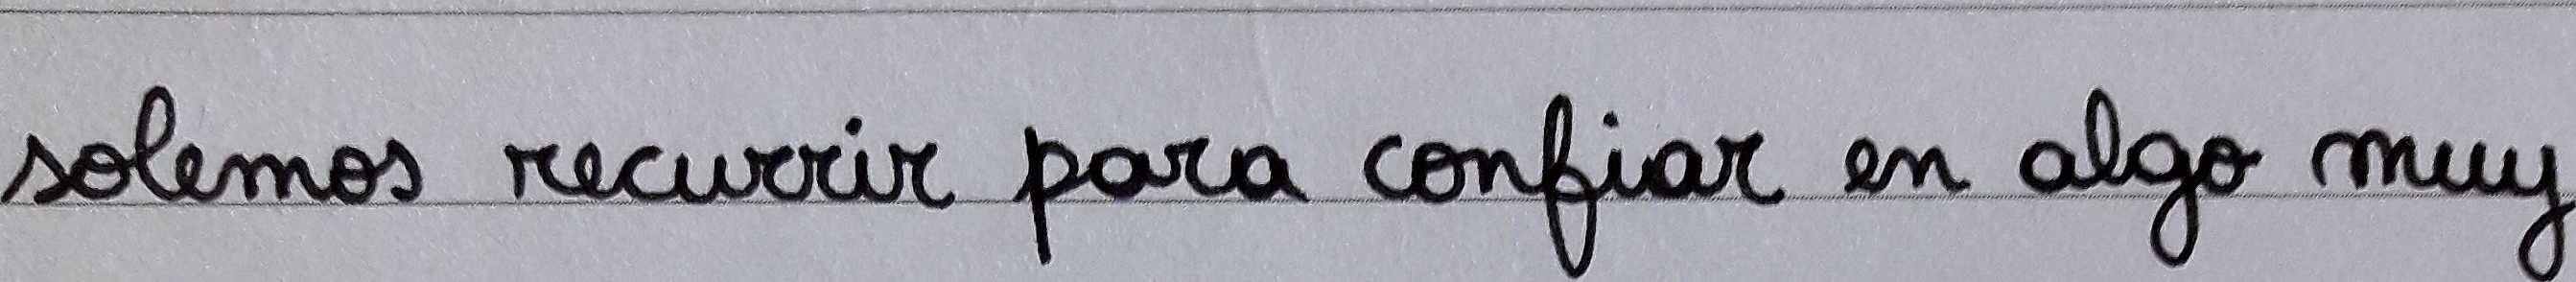 solemos recurrir para confiar en algo muy